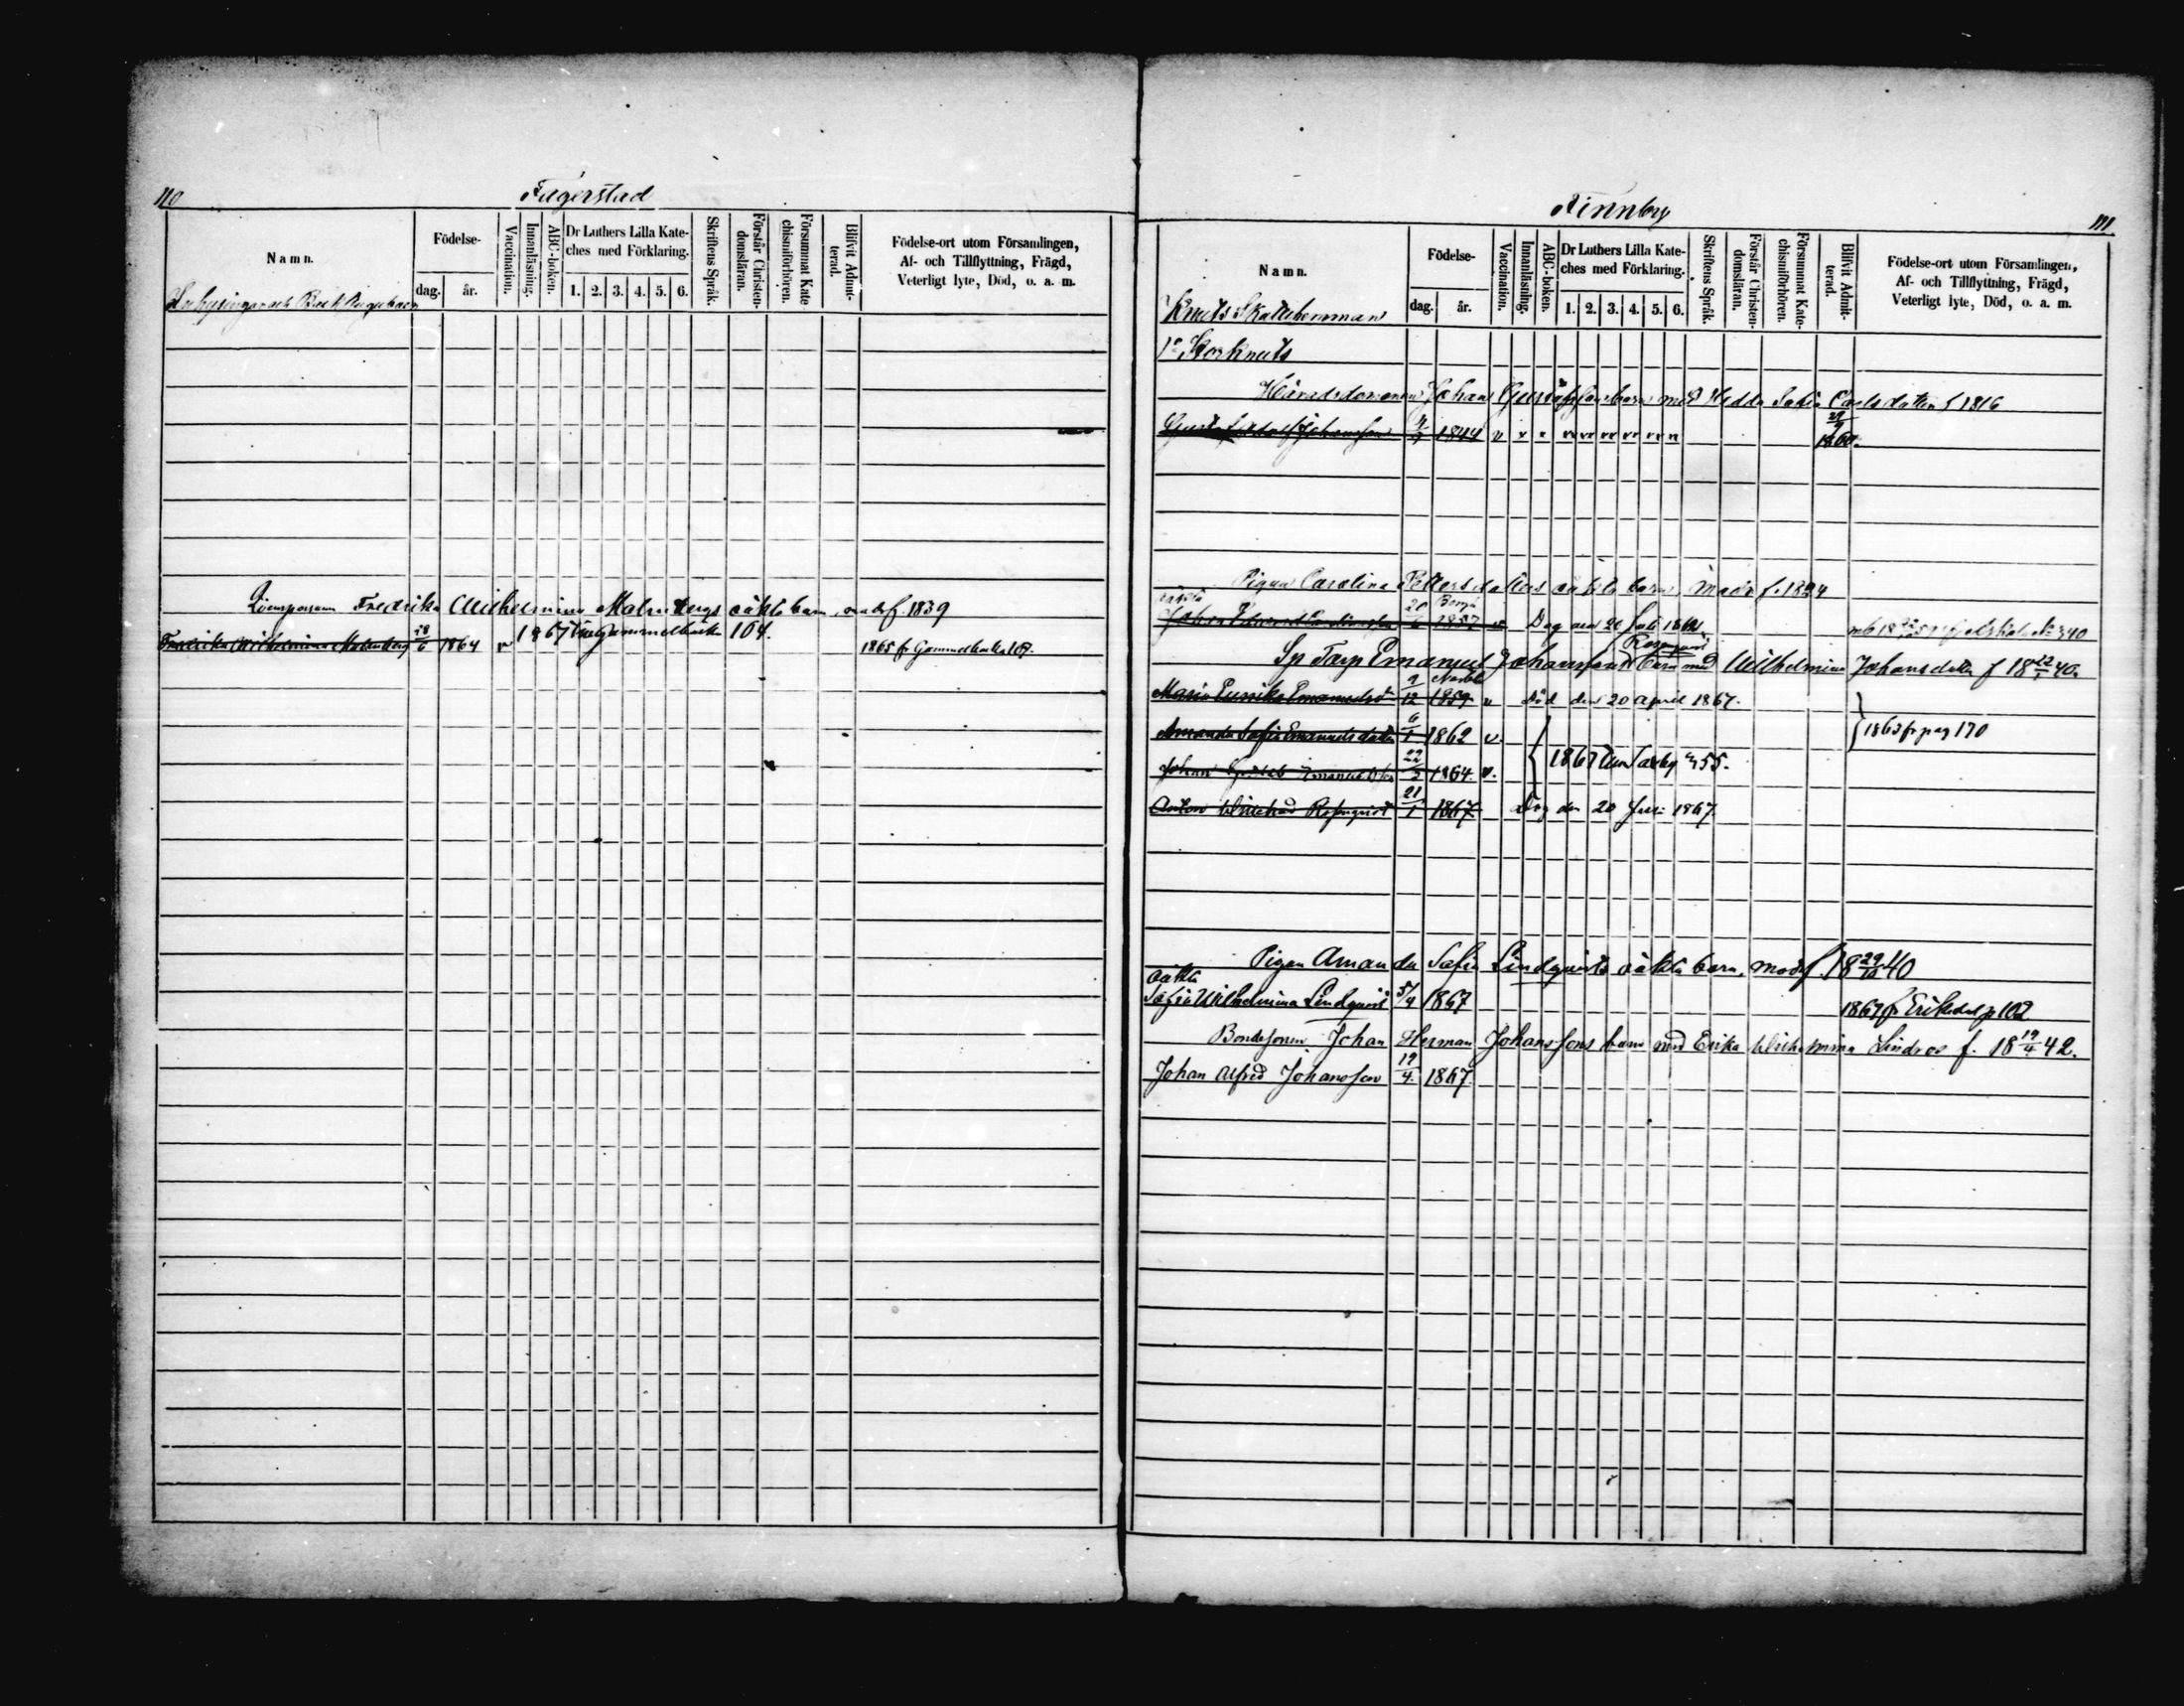 110
Fagerstad
Namn.
Födelse-
dag.
år.
Vaccination.
Innanläsning.
ABC-boken.
Dr Luthers Lilla Kate-
ches med Förklaring.
1. 2. 3. 4. 5. 6.
Skriftens Språk.
Förstår Christen-
domsläran.
Försummat Kate
chismiförhören.
Blifvit Admit-
terad.
Födelse-ort utom Församlingen,
Af- och Tillflyttning, Frägd,
Veterligt lyte, Död, o. a. m.
Inhysingar och
Fredrika Wilhelmina Malmbergs oäkta barn, modr f. 1839
Fredrika Wilhelmina Malmberg 28/6 1864 v 1867 Gammelbacka 104. 1865 fr Gammelbacka 107.
111
Finnby
Namn.
Födelse-
dag.
år.
Vaccination.
Innanläsning.
ABC-boken.
Dr Luthers Lilla Kate-
ches med Förklaring.
1. 2. 3. 4. 5. 6.
Skriftens Språk.
Förstår Christen-
domsläran.
Försummat Kate-
chismiförhören.
Blifvit Admit-
terad.
Födelse-ort utom Församlingen,
Af- och Tillflyttning, Frägd,
Veterligt lyte, Död, o. a. m.
Knuts Skattehemman
1o Storknuts
Häradsdomaren Johan Gustafssons barn med Hedda Sofia Carlsdotter f 1816
Gustaf Adolf Johansson 4/7 1844 v
1860.
Pigan Carolina Pettersdotters oäkta barn, modr f. 1824
oäkta
Borgå
Johan Edvard 20/6 1857 v Dog den 20 Juli 1868
Rosenqvist
Sp Torp Emanuel Johanssons barn med Wilhelmina Johansdotter f 18 22/1 40.
Maria Enrika Emanuelsdr 9/12 1859 v död den 20 April 1867.
Amanda Sofia Emanuelsdotter 6/1 1862 v.
1863 fr pag 170
Johan Emanuelsson 22/3 1864 v. 1867 55.
Anton Wilehad Rosenqvist 21/1 1867 Dog den 20 Juni 1867.
Pigan Amanda Sofia Lindqvists oäkta barn, modr f. 18 29/10 40
oäkta
Sofia Wilhelmina Lindqvist 5/4 1867 1867 fr Eriksdal p 102
Bondesonen Johan Herman Johanssons barn med Erika Wilhelmina Lindroos f. 18 19/4 42.
Johan Alfred Johansson 19/4 1867.